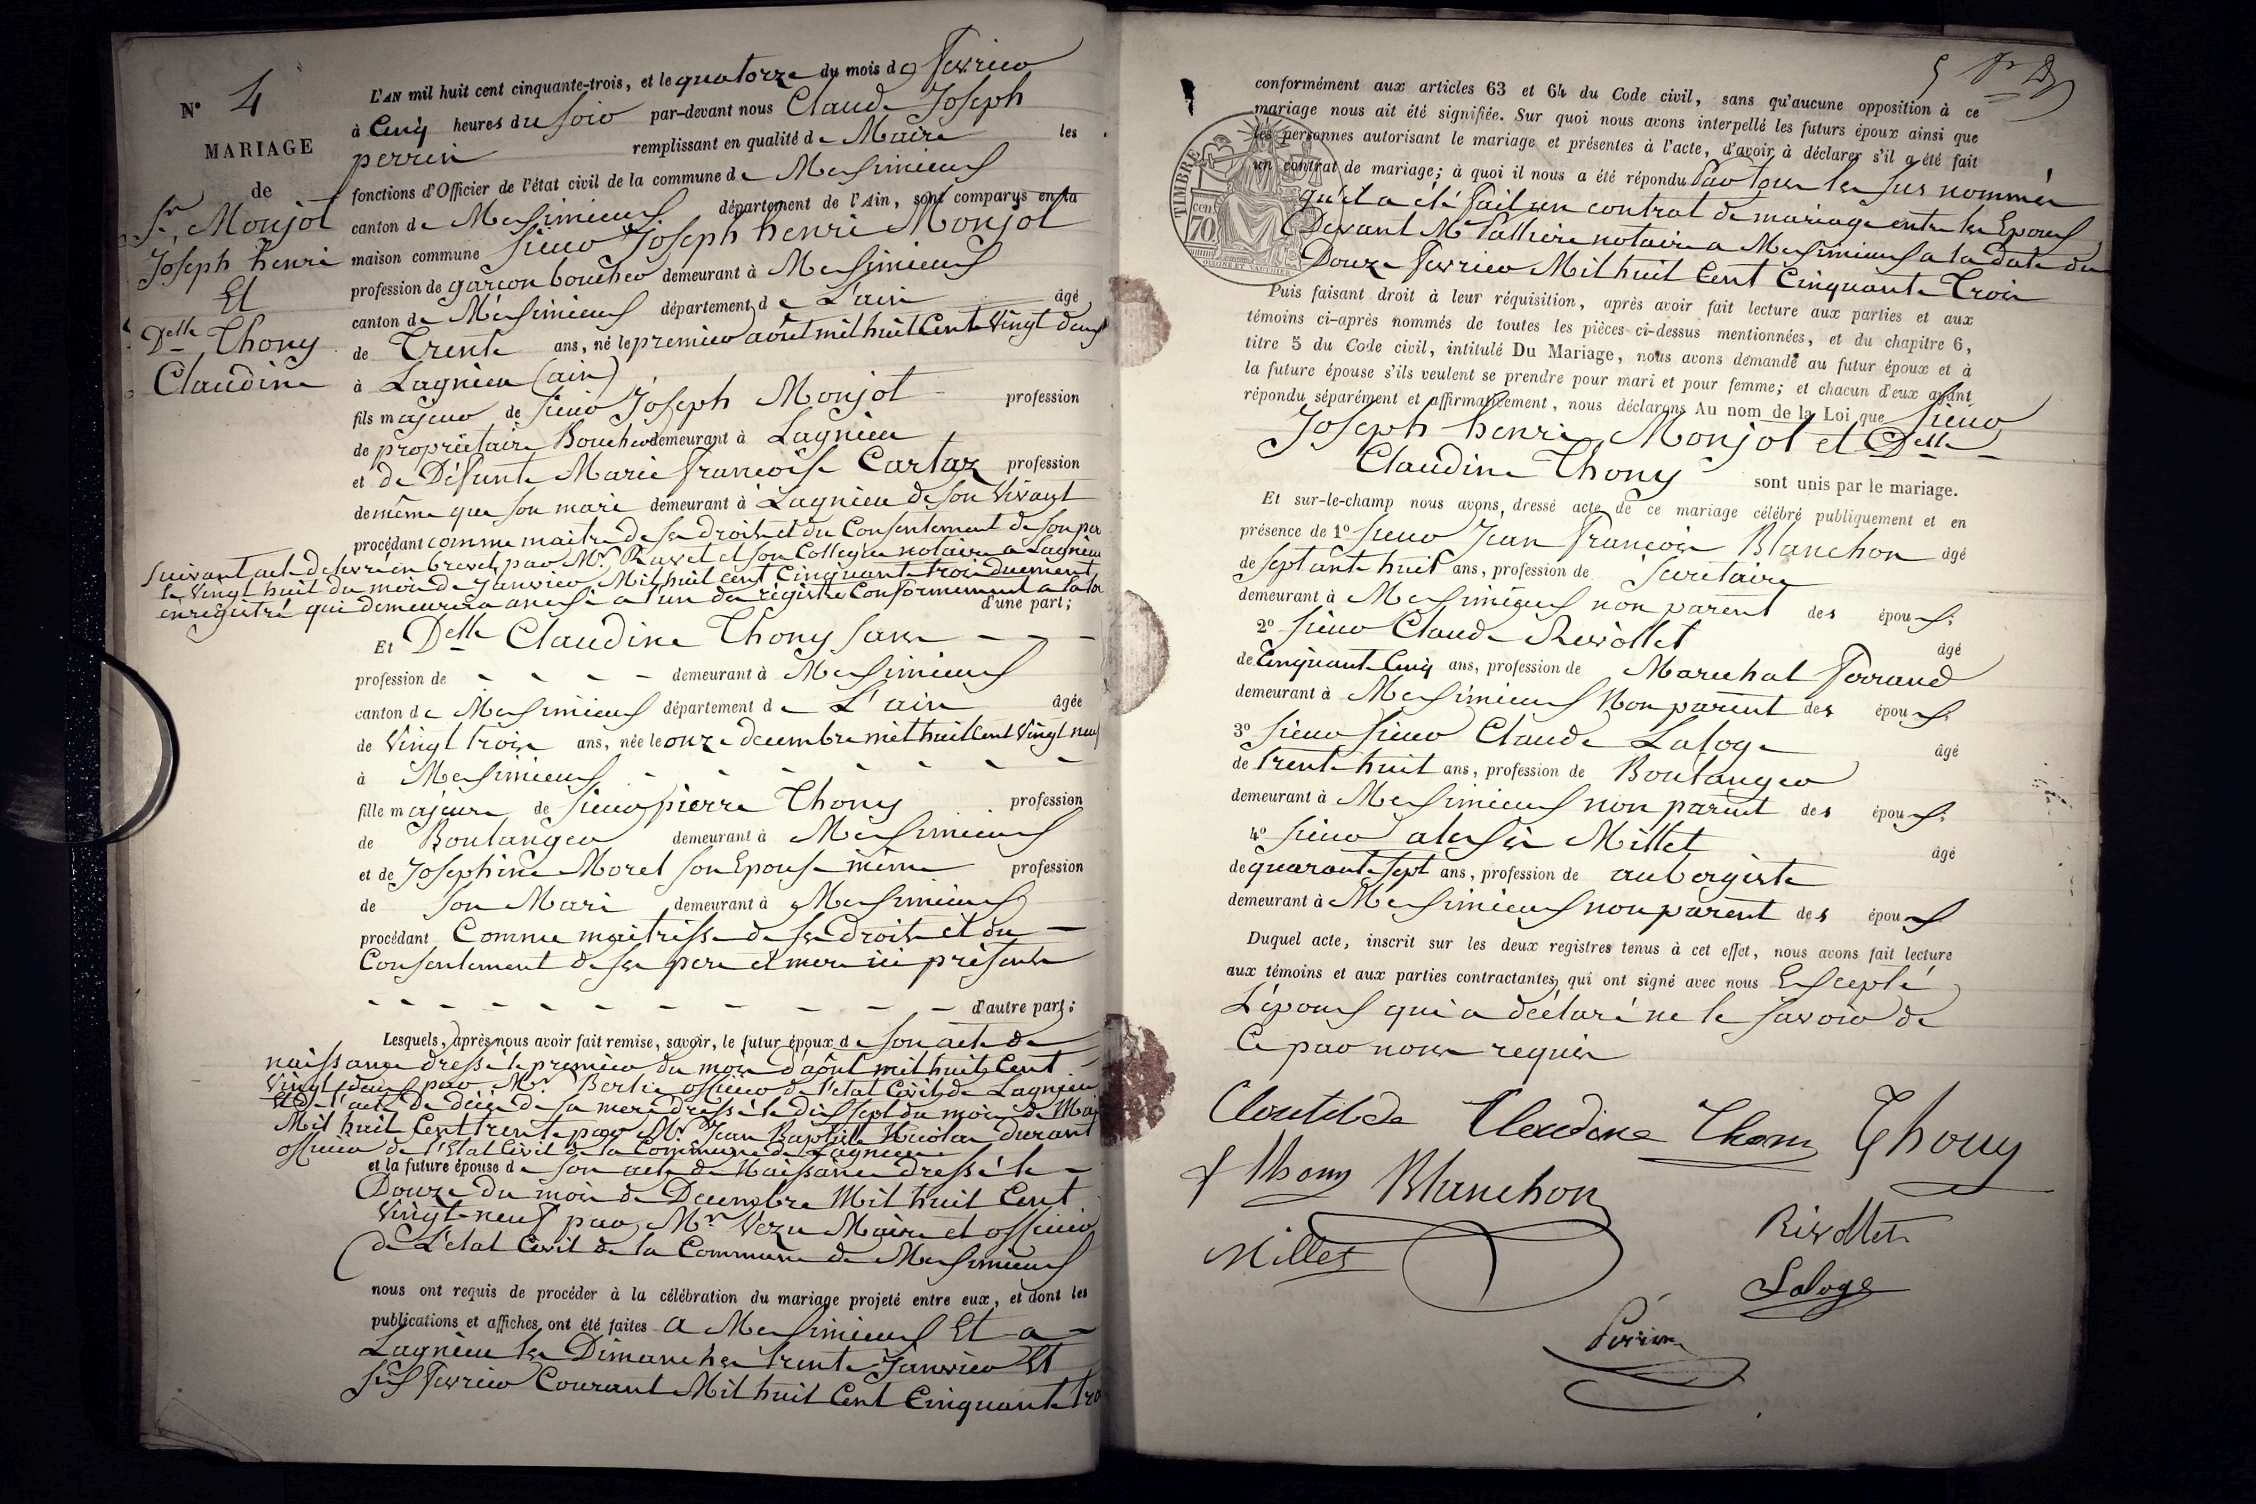 N° 4
MARIAGE
de
Sr Monjot
Joseph henri
Et
Delle Thony
Claudine
L'AN mil huit cent cinquante-trois, et le quatorze du mois de Fevrier
à Cinq heures du soir par-devant nous Claude Joseph
perrin remplissant en qualité de Maire les
fonctions d'Officier de l'état civil de la commune de Meximieux
canton de Meximieux département de l'Ain, sont comparus en la
maison commune Sieur Joseph henri Monjot
profession de garçon boucher demeurant à Meximieux
canton de Méximieux département de L'ain âgé
de Trente ans, né le premier août mil huit Cent Vingt deux
à Lagnieu (ain)
fils majeur de Sieur Joseph Monjot profession
de propriétaire Boucher demeurant à Lagnieu
et de Défunte Marie françoise Cartaz profession
de même que son mari demeurant à Lagnieu de son Vivant
procédant comme maitre de ses droits et du Consentement de son per
suivant acte de levré en brevet par Mr Ravet et son Collegue notaire a Lagnieu
le vingt huit du mois de Janvier Mil huit cent Cinquante trois duement
enregistré qui demeurera anexé a l'un des registres Conformement a la loi
d'une part;
Et Delle Claudine Thony sans
profession de demeurant à Meximieux
canton de Méximieux département de L'ain âgée
de Vingt trois ans, née le onze decembre mil huit Cent Vingt neuf
à Meximieux
fille majeure de Sieur pierre Thony profession
de Boulanger demeurant à Meximieux
et de Josephine Morel son Epouse même profession
de son Mari demeurant à Meximieux
procédant Comme maitresse de ses droits et du
Consentement de ses pere et mere ici présents
d'autre part;
Lesquels, après nous avoir fait remise, savoir, le futur époux de son acte de
naissance dressé le premier du mois d'août mil huit Cent
Vingt deux par Mr Berlie officier de l'état Civil de Lagnieu
et de l'acte De décès de sa mere dressé le dix sept du mois de Mai
Mil huit Cent trente par Mr Jean Baptiste Nicolas Durant
officier de l'Etat Civil de la Commune de Lagnieu
et la future épouse de son acte de Naissance dressé le
Douze du mois de Decembre Mil huit Cent
Vingt-neuf par Mr Vezu Maire et officier
de L'etat Civil de la Commune de Meximieux
nous ont requis de procéder à la célébration du mariage projeté entre eux, et dont les
publications et affiches ont été faites a Meximieux Et a
Lagnieu les Dimanches trente Janvier Et
six Fevrier Courant Mil huit Cent Cinquante tro
5
TIMBRE
cen.
70.
conformément aux articles 63 et 64 du Code civil, sans qu'aucune opposition à ce
mariage nous ait été signifiée. Sur quoi nous avons interpellé les futurs époux ainsi que
les personnes autorisant le mariage et présentes à l'acte, d'avoir à déclarer s'il a été fait
un contrat de mariage; à quoi il nous a été répondu par tous les sus nommés
qu'il a été fait un contrat de mariage entre les Epoux
Devant Me notaire a Meximieux a la date du
Douze fevrier Mil huit Cent Cinquante Trois
Puis faisant droit à leur réquisition, après avoir fait lecture aux parties et aux
témoins ci-après nommés de toutes les pièces ci-dessus mentionnées, et du chapitre 6,
titre 5 du Code civil, intitulé Du Mariage, nous avons demandé au futur époux et à
la future épouse s'ils veulent se prendre pour mari et pour femme; et chacun d'eux ayant
répondu séparément et affirmativement, nous déclarons Au nom de la Loi que Sieur
Joseph henri Monjot et Delle
Claudine Thony sont unis par le mariage.
Et sur-le-champ nous avons, dressé acte de ce mariage célébré publiquement et en
présence de 1° Sieur Jean François Blanchon âgé
de septante huit ans, profession de Secretaire
demeurant à Meximieux non parent des époux;
2° Sieur Claude Revollet âgé
de Cinquante Cinq ans, profession de Marechal Ferrand
demeurant à Meximieux Non parent des époux
3° Sieur Sieur Claude Laloge âgé
de trente huit ans, profession de Boulanger
demeurant à Meximieux non parent des époux;
4° Sieur alexis Millet âgé
de quarante sept ans, profession de aubergiste
demeurant à Meximieux non parent des époux
Duquel acte, inscrit sur les deux registres tenus à cet effet, nous avons fait lecture
aux témoins et aux parties contractantes qui ont signé avec nous Excepté
L'époux qui a déclaré ne le savoir de
Ce par nous requis
Cloutilde Claudine Thony Thony
f thony Blanchon
Rivollet
Millet
Laloge
Perrin